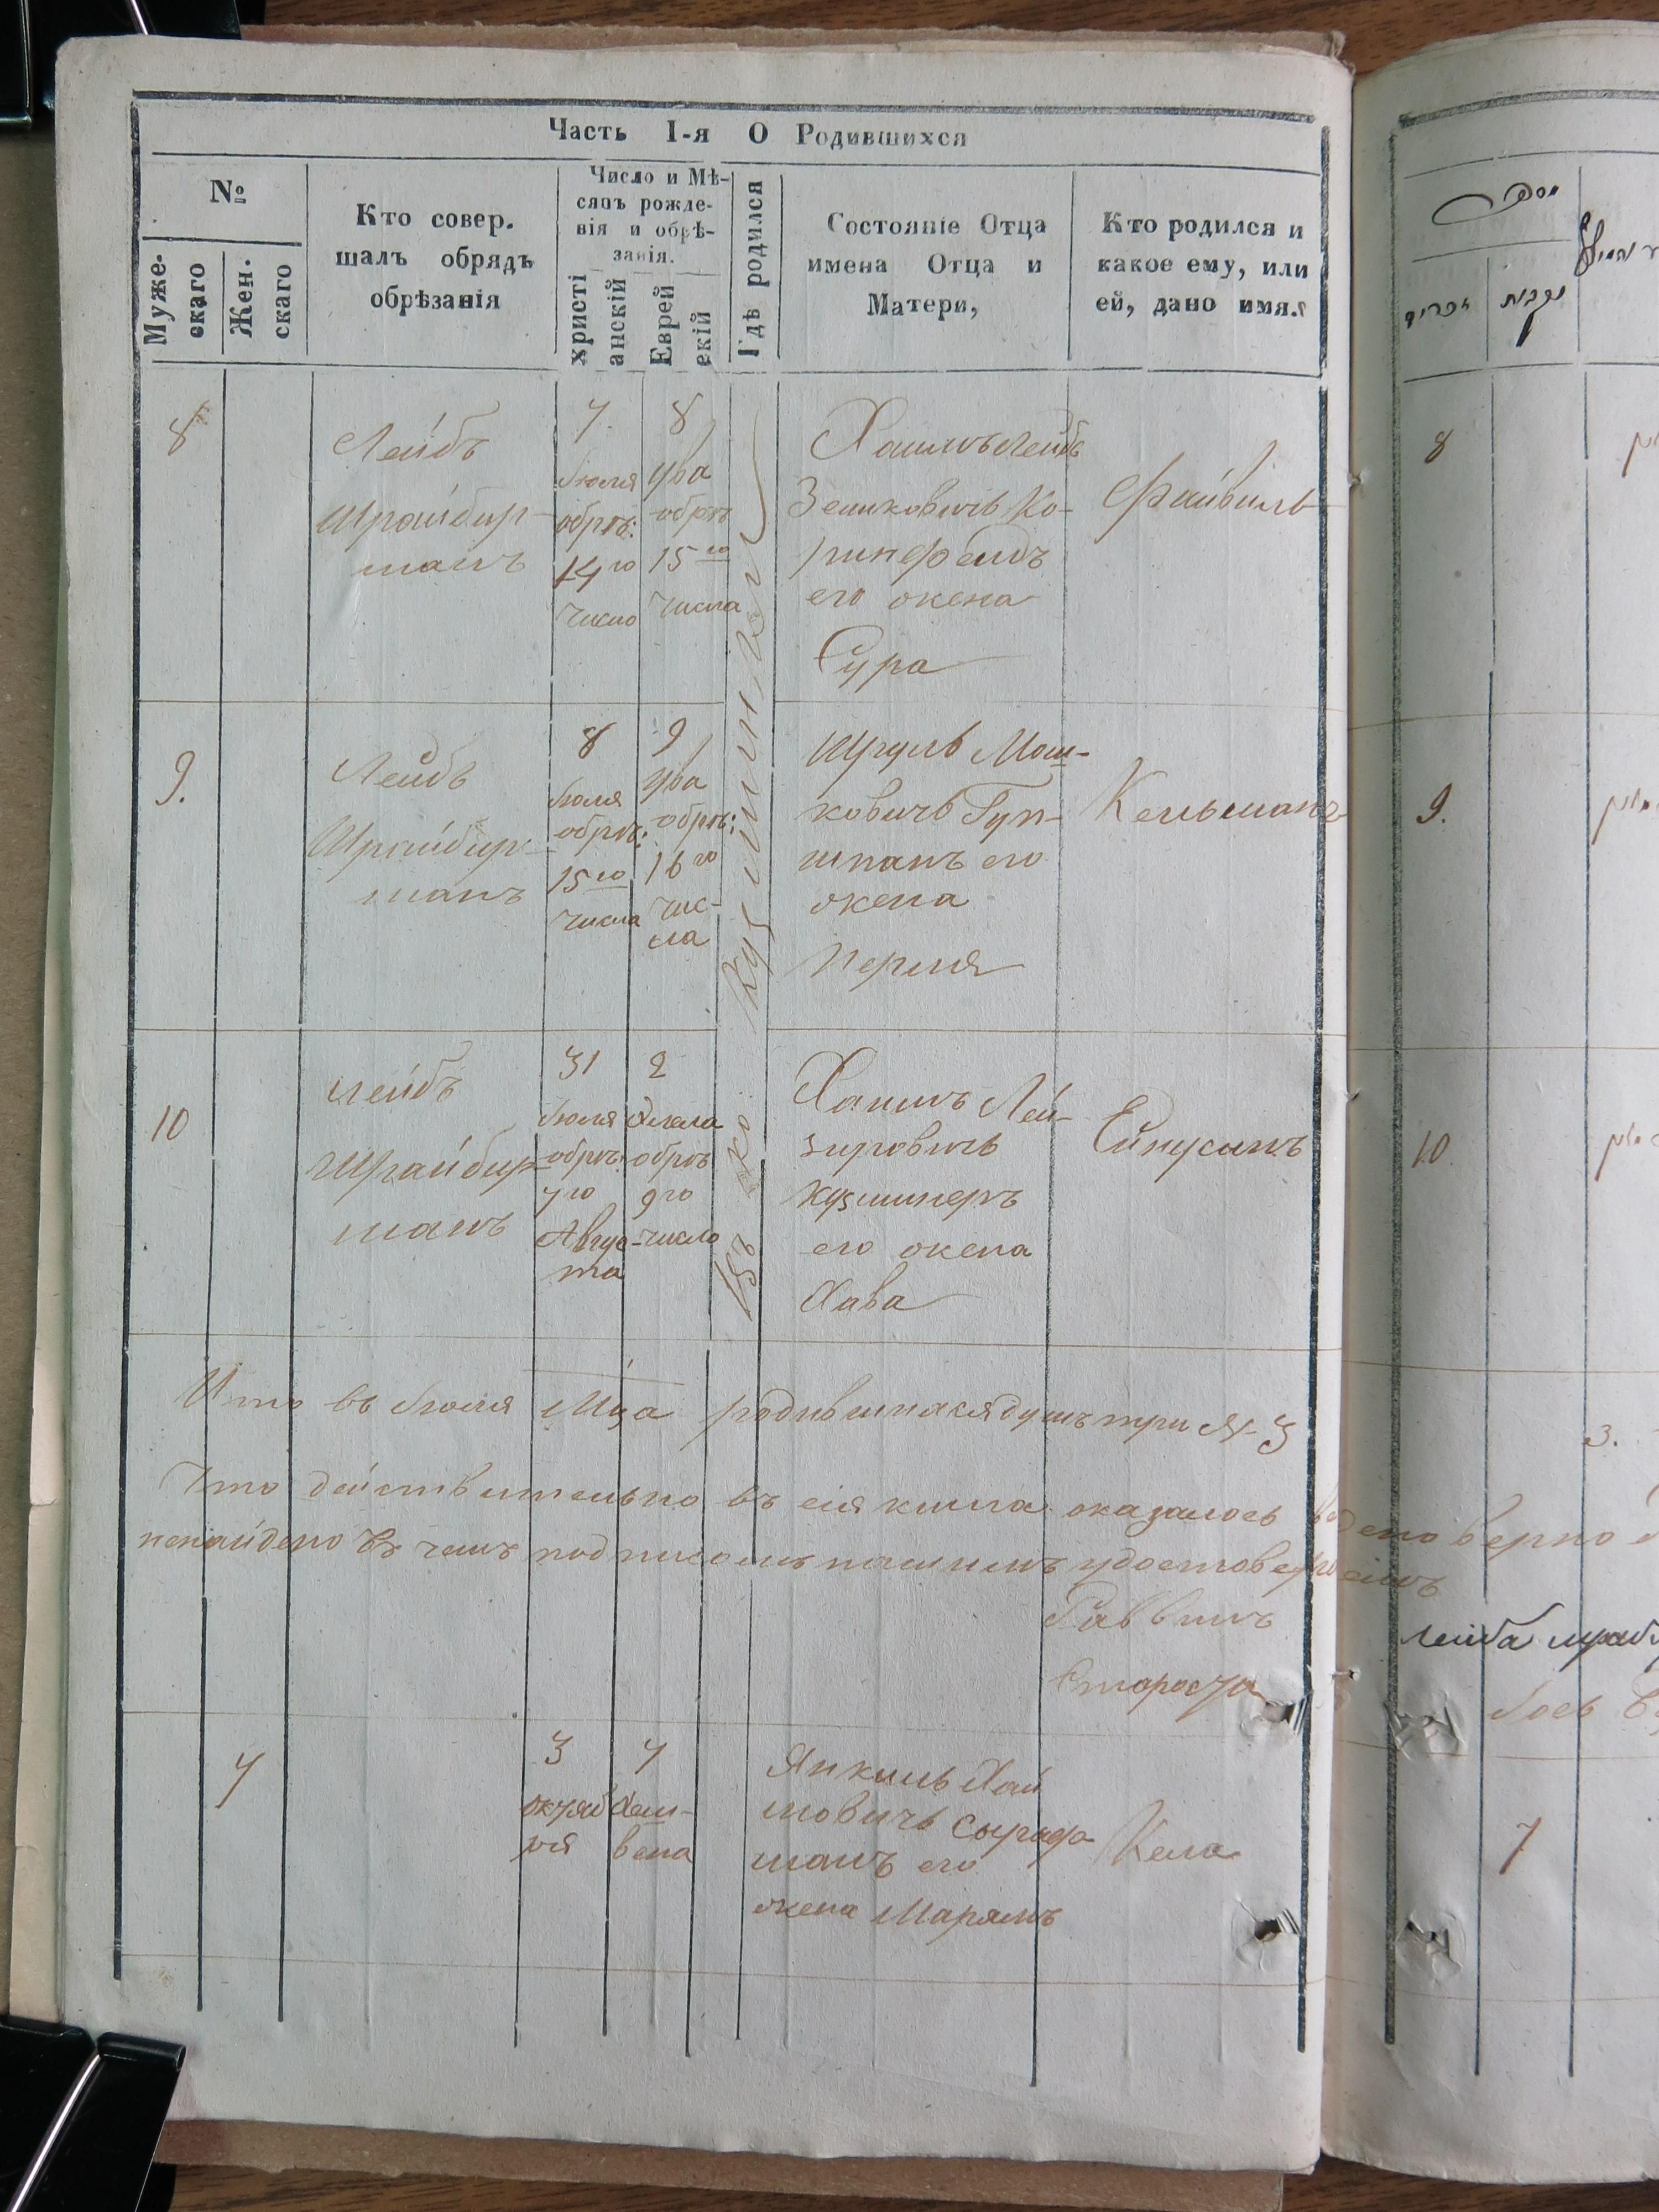 Часть I-я О Родившихся
№
Муже-
скаго
Жен.
скаго
Кто совер.
шалъ обрядъ
обрѣзанія
Число и Мѣ-
сяцъ рожде-
нія и обрѣ-
занія.
христі
анскій
Еврей
скій
Гдѣ родился
Состояніе Отца
имена Отца и
Матери,
Кто родился и
какое ему, или
ей, дано имя.
8
Лейбъ
Шрайбир-
манъ
7
Іюля
обрѣ:
14го
число
8
Ува
обрѣ
15го
числа
Хаимъ Лейбъ
Зелиховичъ Ко-
ринфелдъ
его жена
Сура
Файвиль
9.
Лейбъ
Шрайбир-
манъ
8
Іюля
обрѣ:
15го
числа
9
Ува
обрѣ:
16го
чис-
ла
Шруль Мош-
ковичъ Гун-
шпанъ его
жена
Перля
Кельманъ
10
Лейбъ
Шрайбир-
манъ
31
Іюля
обрѣ:
7го
Авгус-
та
2
Элела
обрѣ
9го
число
Хаимъ Лей-
зировичъ
Кузминеръ
его жена
Хава
Ейнусинъ
Въ
Итто въ Іюля М-ца родившихся душъ три №-3
Что дѣйствительно въ сія книга оказалось ведено верно
ненайдено въ чемъ подписомъ нашимъ удостоверяемъ
Раввинъ
Староста
7
3
октяб
ря
7
Хеш-
вена
Янкель Хаи
мовичъ
манъ его
жена Марямъ
Кела
זכרים
נקבות
8
9.
10
3.
Лейба
7